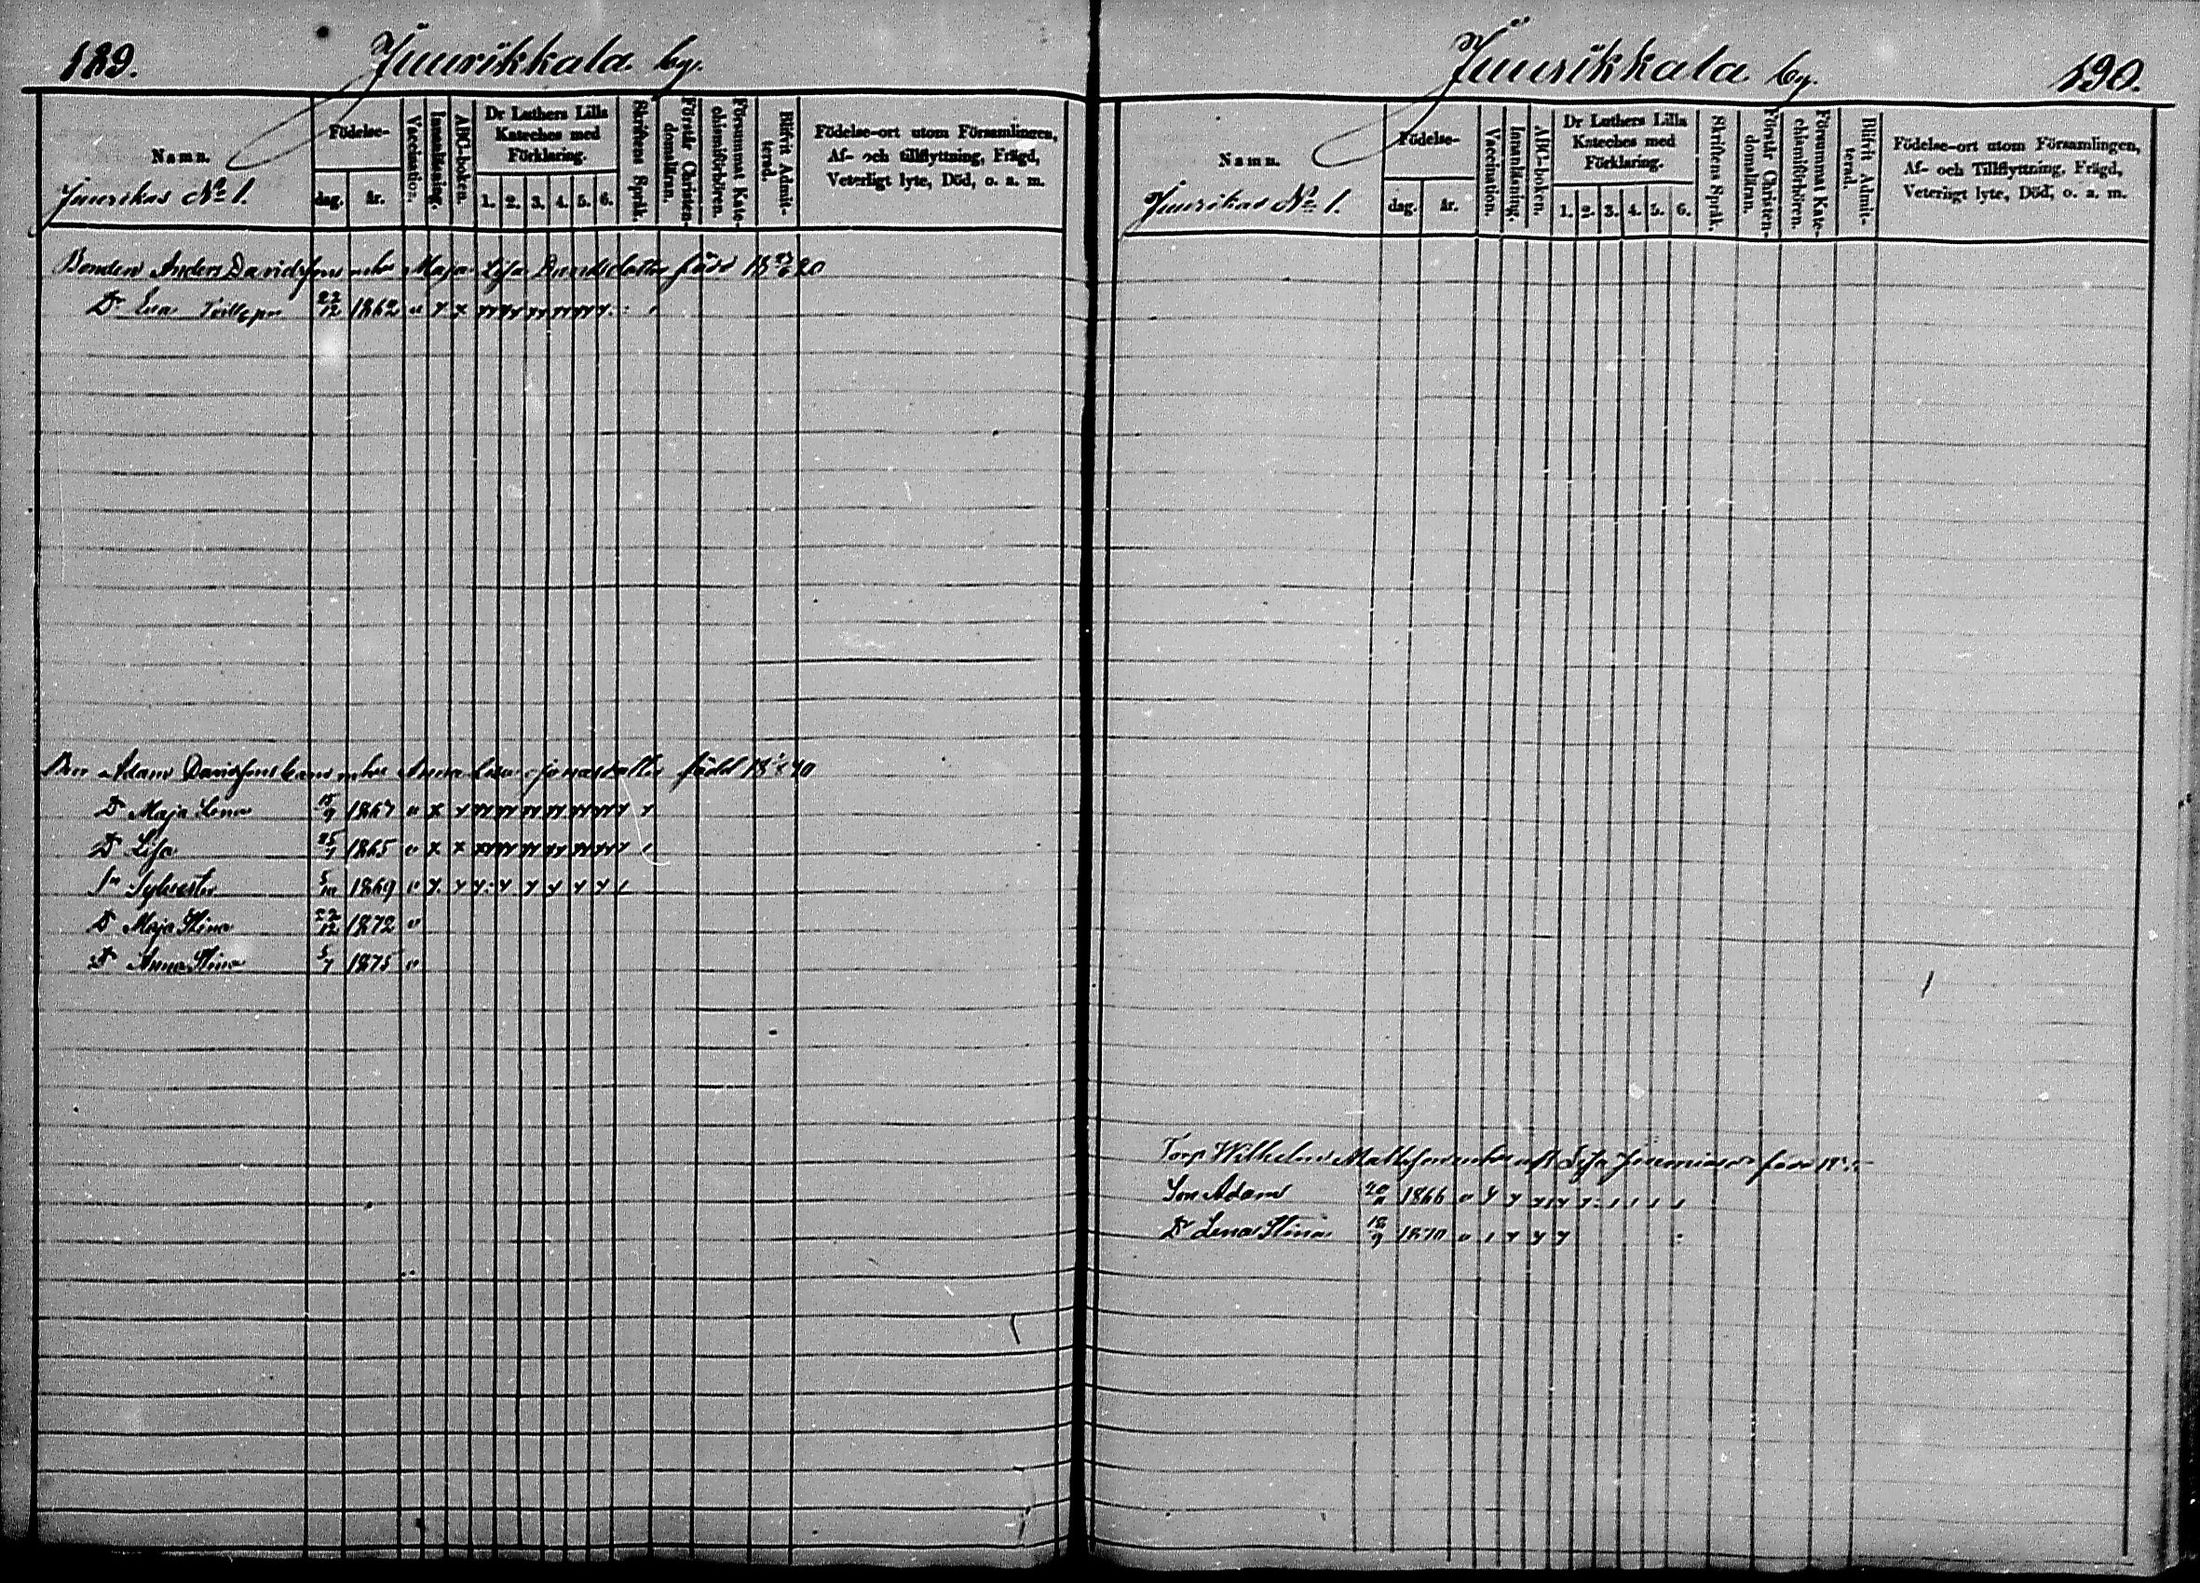 189. Juurikkala by.
Namn.
Juurikas No 1.
Födelse-
dag. år.
Vaccination.
Innanläsning.
ABC-boken.
Dr Luthers Lilla
Kateches med
Förklaring.
1. 2. 3. 4. 5. 6.
Skriftens Språk.
Förstår Christen-
domsläran.
Försummat Kate-
chismiförhören.
Blifvit Admit-
terad.
Födelse-ort utom Församlingen,
Af- och tillflyttning, Frägd,
Veterligt lyte, Död, o. a. m.
Bonden Anders Davidssons Maja Lisa Davidsdotter född
Dr Eva 22/12 1862
Adam Davidssons Anna Lisa Jonasdotter född
Dr Maja Lena 15/9 1867
Dr Lisa 1865
Sn Sylvester 1869
Dr Maja Stina 22/12 1872
Dr Anna Stina 5/7 1875
Juurikkala by. 190.
Namn.
Juurikas No 1.
Födelse-
dag. år.
Vaccination.
Innanläsning.
ABC-boken.
Dr Luthers Lilla
Kateches med
Förklaring.
1. 2. 3. 4. 5. 6.
Skriftens Språk.
Förstår Christen-
domsläran.
Försummat Kate-
chismiförhören.
Blifvit Admit-
terad.
Födelse-ort utom Församlingen,
Af- och Tillflyttning, Frägd,
Veterligt lyte, Död, o. a. m.
Torp Wilhelm Lisa
Son Adam 1866
Dr Lena Stina 18/9 1870